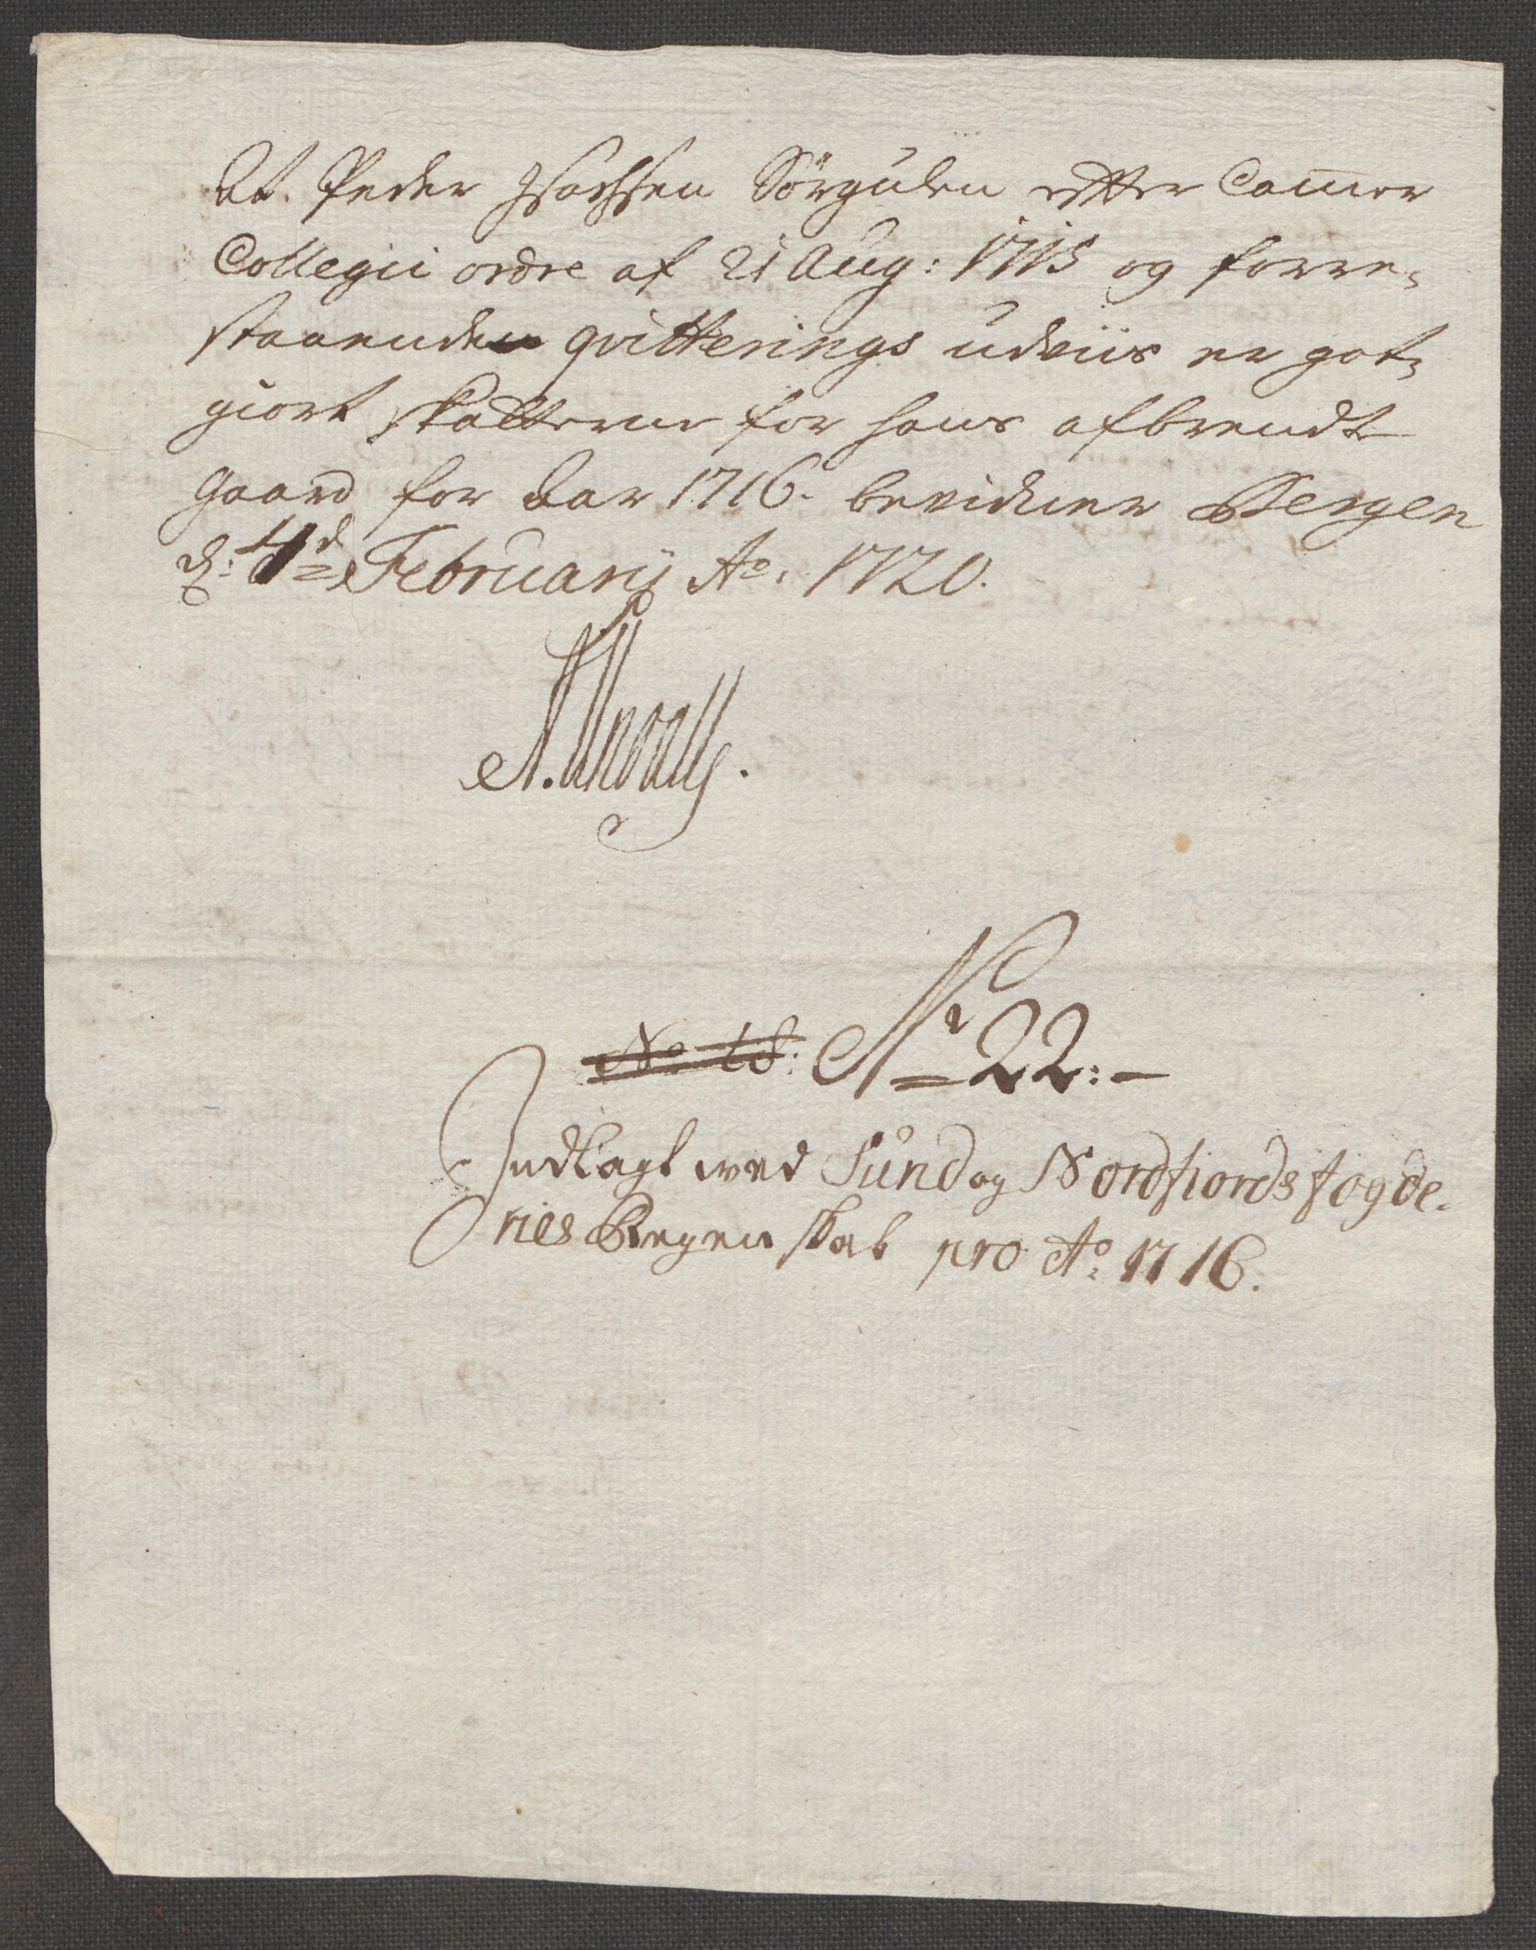 At Peder Isachsen Sørgulen efter Camer
Collegii ordre af 21 Aug: 1715 og forre-
staaende qvitterings udviis er got-
giort skatterne for hans afbrendt
gaard for Aar 1716. bevidner Bergen
d: 4d Februarij Ao. 1720.
No 18: Nr 22:-
Indlagt wed Sund og Nordfiords fogde-
ries Regenskab pro Ao. 1716.